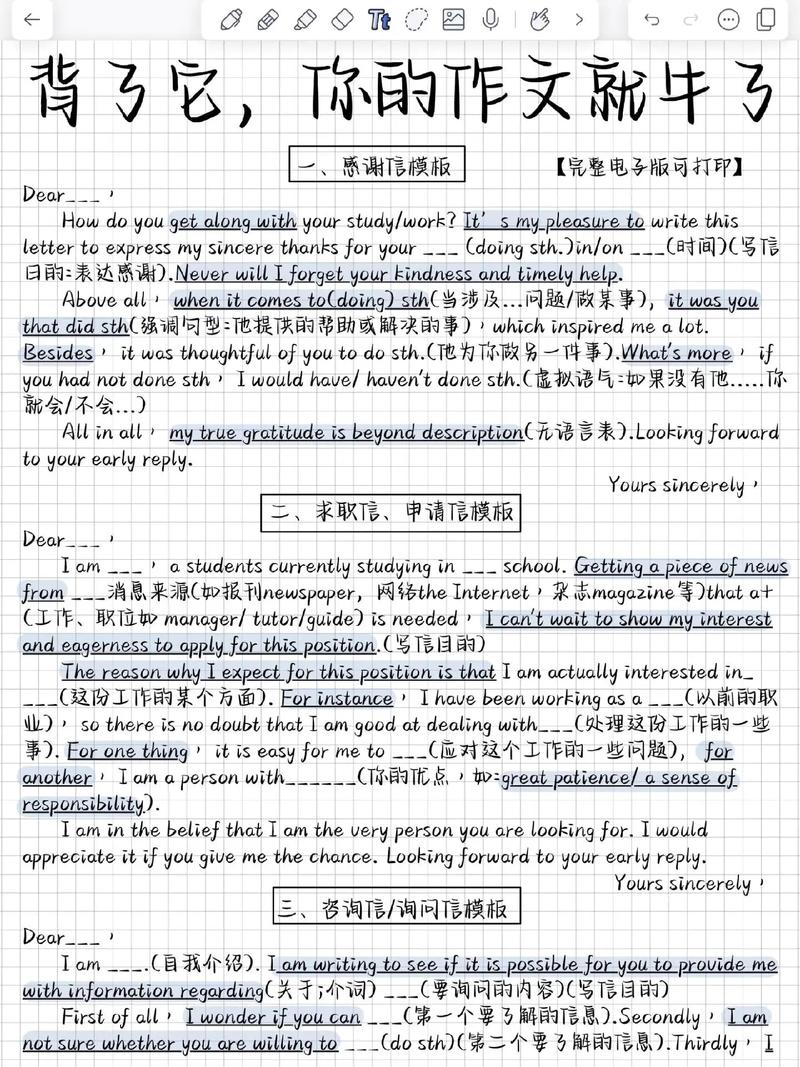 Tt
背了它，你的作文就牛了
一、感谢信模板
【完整电子版可打印】
Dear___，
How do you get along with your study/work? It's my pleasure to write this
letter to express my sincere thanks for your ___ (doing sth.)in/on ___(时间)(写信
目的:表达感谢).Never will I forget your kindness and timely help.
Above all， when it comes to(doing) sth(当涉及...问题/做某事), it was you
that did sth(强调句型:他提供的帮助或解决的事)，which inspired me a lot.
Besides， it was thoughtful of you to do sth.(他为你做另一件事).What's more， if
you had not done sth， I would have/ haven't done sth.(虚拟语气:如果没有他.....你
就会/不会...)
All in all， my true gratitude is beyond description(无语言表).Looking forward
to your early reply.
Yours sincerely，
二、求职信、申请信模板
Dear___，
I am ___， a students currently studying in ___ school. Getting a piece of news
from ___消息来源(如报刊newspaper, 网络the Internet，杂志magazine等)that a+
(工作、职位如 manager/ tutor/guide) is needed， I can't wait to show my interest
and eagerness to apply for this position.(写信目的)
The reason why I expect for this position is that I am actually interested in_
___(这份工作的某个方面). For instance， I have been working as a ___(以前的职
业)，so there is no doubt that I am good at dealing with___(处理这份工作的一些
事). For one thing， it is easy for me to ___(应对这个工作的一些问题), for
another， I am a person with______(你的优点，如:great patience/ a sense of
responsibility).
I am in the belief that I am the very person you are looking for. I would
appreciate it if you give me the chance. Looking forward to your early reply.
Yours sincerely，
三、咨询信/询问信模板
Dear___，
I am ___.(自我介绍). I am writing to see if it is possible for you to provide me
with information regarding(关于;介词) ___(要询问的内容)(写信目的)
First of all， I wonder if you can ___(第一个要了解的信息).Secondly， I am
not sure whether you are willing to ___(do sth)(第二个要了解的信息).Thirdly， I